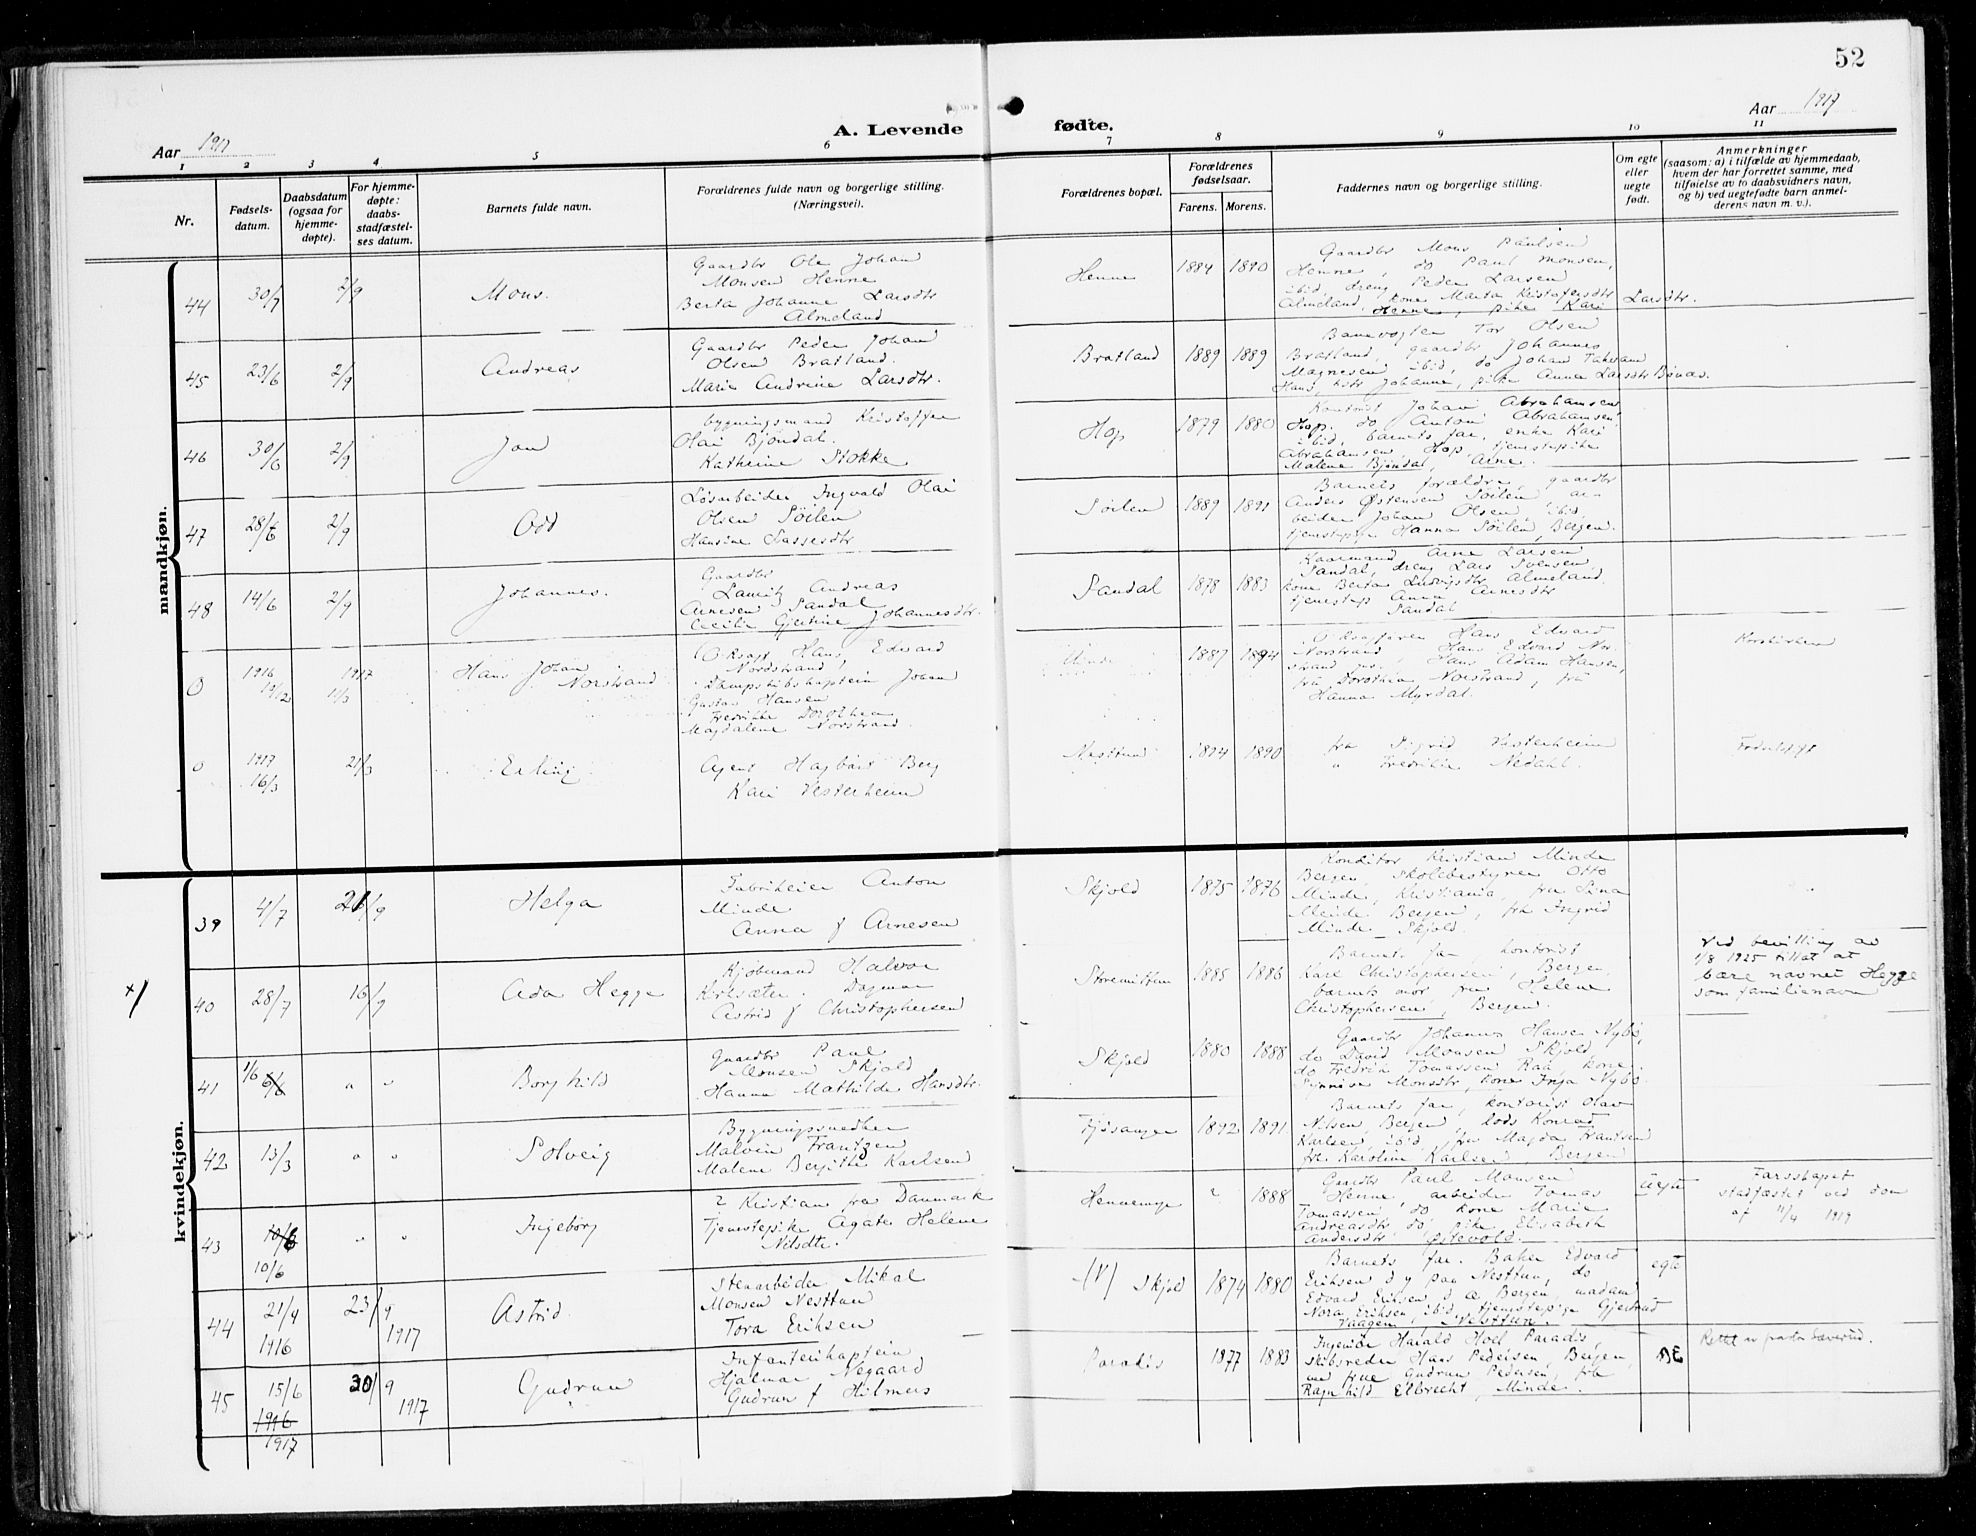 52
Aar 1917
A. Levende fødte.
Aar 1917
1 2 3 4 5 6 7 8 9 10 11
Nr.
Fødsels-
datum.
Daabsdatum
(ogsaa for
hjemme-
døpte).
For hjemme-
døpte:
daabs-
stadfæstel-
ses datum.
Barnets fulde navn.
Forældrenes fulde navn og borgerlige stilling.
(Næringsvei).
Forældrenes bopæl.
Forældrenes
fødselsaar.
Farens. Morens.
Faddernes navn og borgerlige stilling.
Om egte
eller
uegte
født.
Anmerkninger
(saasom: a) i tilfælde av hjemmedaab,
hvem der har forrettet samme, med
tilføielse av to daabsvidners navn,
og b) ved uegtefødte barn anmel-
derens navn m. v.).
mandkjøn.
44 30/7 2/9 Mons.
Gaardbr Ole Johan
Monsen Henne
Berta Johanne Larsdtr
Almeland
Henne 1884 1890
Gaardbr Mons Paulsen
Henne, do Paul Monsen,
ibid, dreng Peder Larsen
Almeland, kone Marta Kristofersdtr
Henne, pike Kari Larsdtr.
45 23/6 2/9 Andreas
Gaardbr Peder Johan
Olsen Bratland.
Marie Andrine Larsdtr.
Bratland 1889 1889
Banevogter Tor Olsen
Bratland, gaardbr Johannes
Magnesen ibid, do Johan
Johanne, pike Anna Larsdtr Bønæs.
46 30/6 2/9 Jon
bygningsmand Kristoffer
Olai Bjøndal.
Kathrine Stokke
Hop 1879 1880
Kontorist Johan Abrahamsen
Hop. do Anton Abrahamsen
ibid, barnets far, enke Kari
Abrahamsen, Hop, tjenestepike
Malene Bjøndal, Arne.
47 28/6 2/9 Odd
Løsarbeider Ingvald Olai
Olsen Søilen
Hansine Lassesdtr
Søilen 1889 1891
Barnets forældre, gaardbr
Anders Østensen Søilen ar-
beider Johan Olsen, ibid,
tjenestepike Hanna Søilen, Bergen.
48 14/6 2/9 Johannes.
Gaardbr
Lauritz Andreas
Arnesen Sandal
Cecilie Gjertine Johannesdtr.
Sandal 1878 1883
Kaarmand Arne Larsen
Sandal, dreng Lars Svensen
kone Berta Ludvigsdtr Almeland.
tjenestep Anna Arnesdtr
Sandal
0 1916 19/12 1917 11/3 Hans Johan
Norstrand
O.r.sagf. Hans Edvard
Nordstrand,
Dampskibskaptein Johan
Gustav Hansen
Fredrikke Dorothea
Magdalene Norstrand.
Minde 1887 1894
O.r.sagfører Hans Edvard
Norstrand, Hans Edvard Nor-
strand jr., Hans Adam Hansen,
fru Dorothea Norstrand, fru
Hanna Myrdal.
Korskirken
0 1917 16/3 21/3 Erling
Agent Hagbart Berg
Kari Vesterheim
Nesttun 1894 1890
fru Sigrid Vesterheim
" Fredrikke Nedahl.
Fødselstift
kvindekjøn.
39 4/7 2/9 Helga
Fabrikeier Anton
Minde
Anna f Arnesen
Skjold 1875 1876
Konditor Kristian Minde
Bergen Skolebestyrer Otto
Minde, Kristiania, fru Sina
Minde Bergen, frk Ingrid
Minde Skjold.
+/ 40 28/7 16/9 Ada Hegge
Kjøbmand Halvor
Dagmar
Astrid f Christophersen
1885 1886
Barnets far, kontorist
Karl Christophersen, Bergen,
barnets mor fru Helene
Christophersen, Bergen.
Ved bevilling av
1/8 1925 tillat at
bære navnet Hegge
som familienavn
41 1/6 6/6 " " Borghild
Gaardbr Paul
Monsen Skjold
Hanna Mathilde Hansdtr.
Skjold 1880 1888
Gaardbr Johannes Hansen Nybø,
do David Monsen Skjold,
do Fredrik Tomassen Raa, kone
Synnøve Monsdtr, kone Inga Nybø
42 13/3 " " Solveig
Bygningssnedker
Malvin Frantzen
Malene Bergithe Karlsen
Fjøsanger 1892 1891
Barnets far, kontorist Olav
Nilsen, Bergen, lods Konrad
Karlsen ibid, fru Magda Frantsen
frk Karoline Karlsen, Bergen
43 10/8 10/6 " " Ingeborg
? Kristian fra Danmark
Tjenestepike Agate Helene
Nilsdtr.
Henne ? 1888
Gaardbr Paul Monsen
Henne, arbeider Tomas
Tomassen do kone Marie
Andreasdtr do pike Elisabeth
Andersdtr Østevold.
uegte
Farsskapet
stadfæstet ved dom
af 11/4 1919
44 21/9 1916 23/9 1917 Astrid.
Stenarbeider Mikal
Monsen Nesttun
Tora Eriksen
(V) Skjold 1874 1880
Barnets far. Baker Edvard
Eriksen d y paa Nesttun, do
Edvard Eriksen d æ Bergen, madam
Nora Eriksen, ibid, tjenestepige Gjertrud
Vaagen, Nesttun.
egte
45 15/6 1916 1917 30/9 1917 Gudrun
Infanterikaptein
Hjalmar Negaard
Gudrun f Hilmers
Paradis 1877 1883
Ingeniør Harald Hoel Paradis,
skibsreder Hans Pedersen, Bergen,
med frue Gudrun Pedersen, frk
Ragnhild Elbrecht, Minde.
Æ